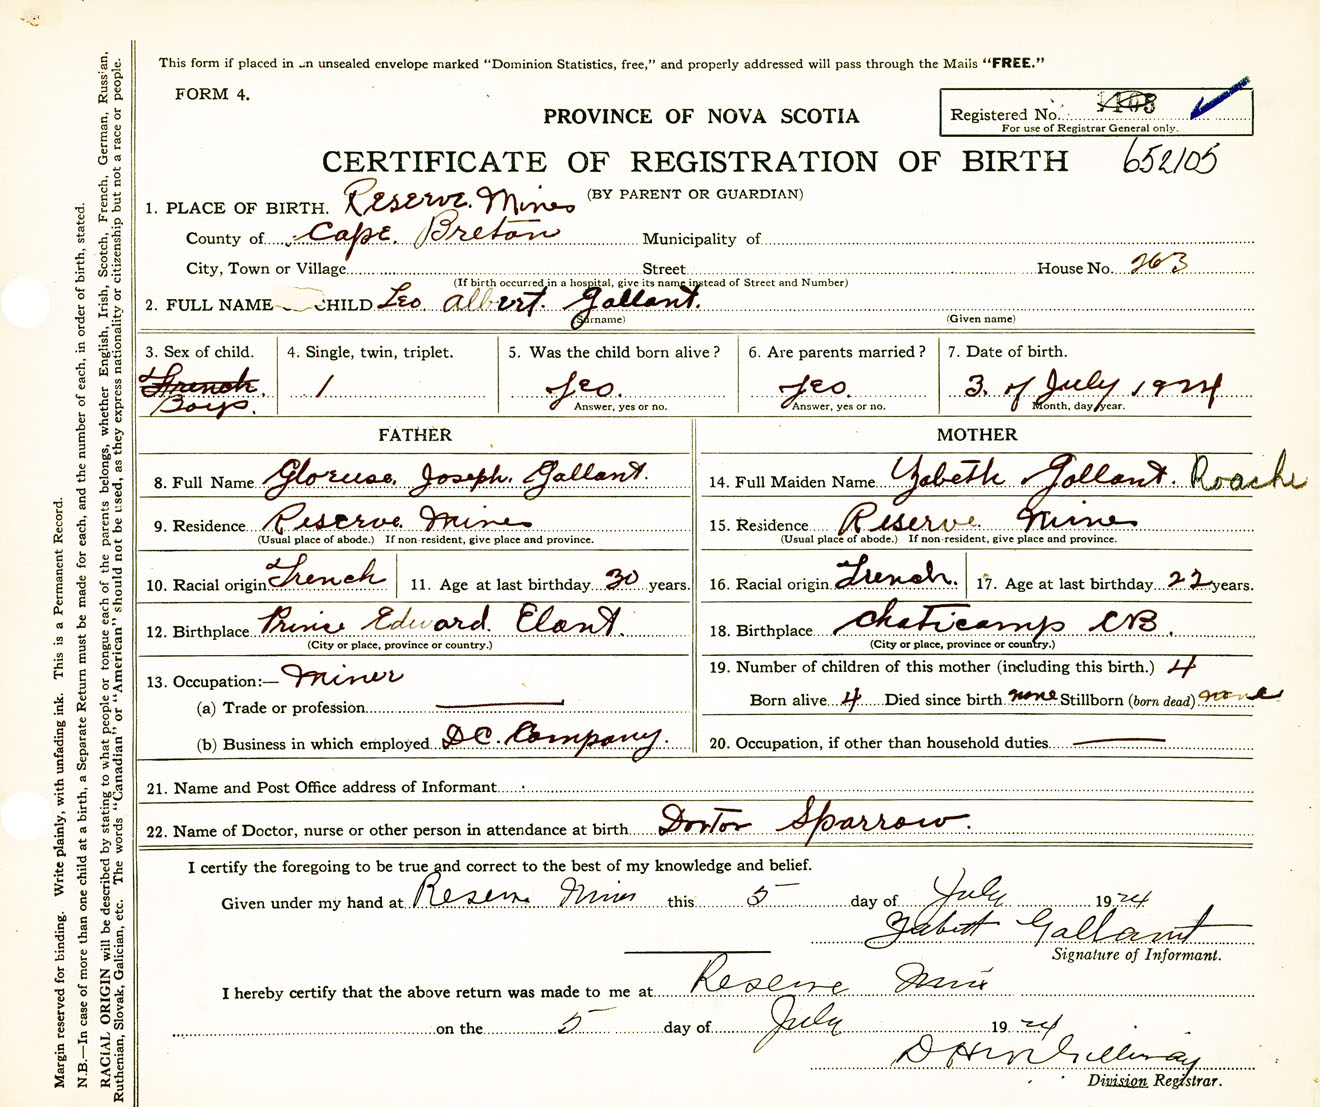 This form if placed in an unsealed envelope marked "Dominion Statistics, free," and properly addressed will pass through the Mails "FREE."
FORM 4.
PROVINCE OF NOVA SCOTIA
Registered No.
For use of Registrar General only.
CERTIFICATE OF REGISTRATION OF BIRTH 652105
(BY PARENT OR GUARDIAN)
1. PLACE OF BIRTH. Reserve Mines
County of Cape Breton Municipality of
City, Town or Village Street House No. 263
(If birth occurred in a hospital, give its name instead of Street and Number)
2. FULL NAME CHILD Leo Albert Gallant.
(Surname) (Given name)
3. Sex of child. 4. Single, twin, triplet. 5. Was the child born alive? 6. Are parents married? 7. Date of birth.
French
Boys. 1 yes. yes. 3 of July 1924
Answer, yes or no. Answer, yes or no. Month, day, year.
FATHER MOTHER
8. Full Name Joseph Gallant. 14. Full Maiden Name Gallant. Roache
9. Residence Reserve Mines 15. Residence Reserve Mines
(Usual place of abode.) If non-resident, give place and province. (Usual place of abode.) If non-resident, give place and province.
10. Racial origin French 11. Age at last birthday 30 years. 16. Racial origin French. 17. Age at last birthday 22 years.
12. Birthplace Prince Edward Elant. 18. Birthplace Chaticamp CB.
(City or place, province or country.) (City or place, province or country.)
13. Occupation:— Miner 19. Number of children of this mother (including this birth.) 4
(a) Trade or profession Born alive 4 Died since birth none Stillborn (born dead) none
(b) Business in which employed D.C. Company. 20. Occupation, if other than household duties
21. Name and Post Office address of Informant
22. Name of Doctor, nurse or other person in attendance at birth Doctor Sparrow.
I certify the foregoing to be true and correct to the best of my knowledge and belief.
Given under my hand at Reserve Mines this 5 day of July 1924
Gallant
Signature of Informant.
I hereby certify that the above return was made to me at Reserve Mines
on the 5 day of July 1924
Division Registrar.
Margin reserved for binding. Write plainly, with unfading ink. This is a Permanent Record.
N.B.—In case of more than one child at a birth, a Separate Return must be made for each, and the number of each, in order of birth, stated.
RACIAL ORIGIN will be described by stating to what people or tongue each of the parents belongs, whether English, Irish, Scotch, French, German, Russian,
Ruthenian, Slovak, Galician, etc. The words "Canadian" or "American" should not be used, as they express nationality or citizenship but not a race or people.